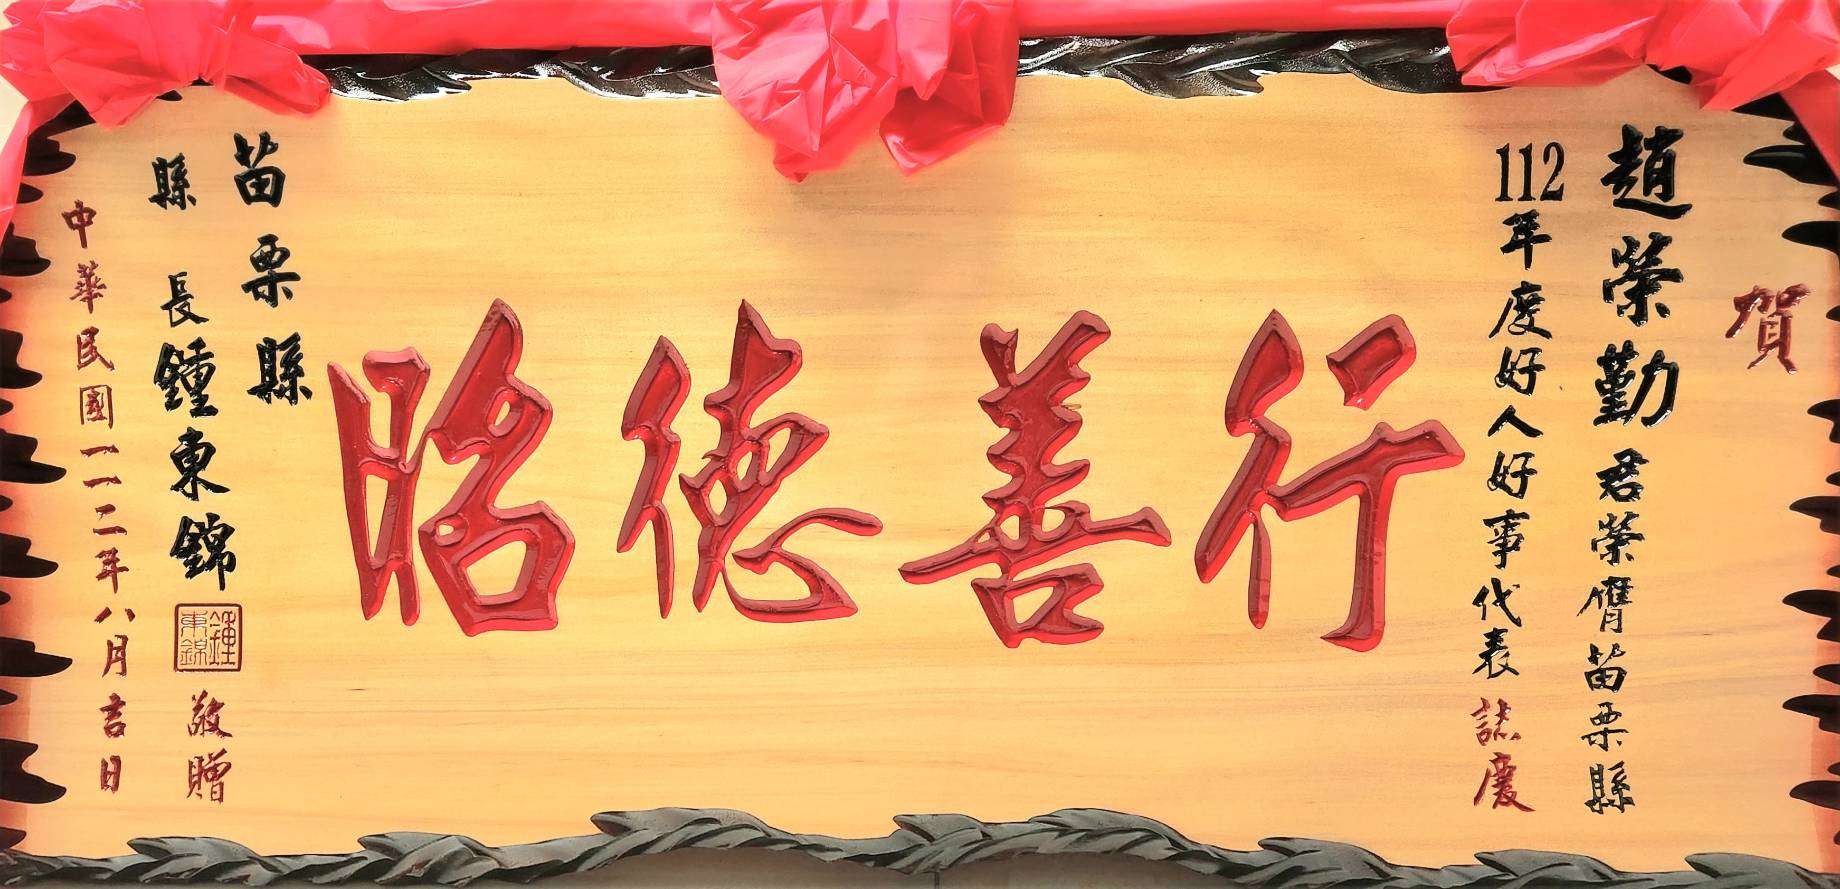 賀
趙榮勤君榮膺苗栗縣
112年度好人好事代表誌慶
行善德昭
苗栗縣
縣長鍾東錦
鍾東錦
敬贈
中華民國一一二年八月吉日